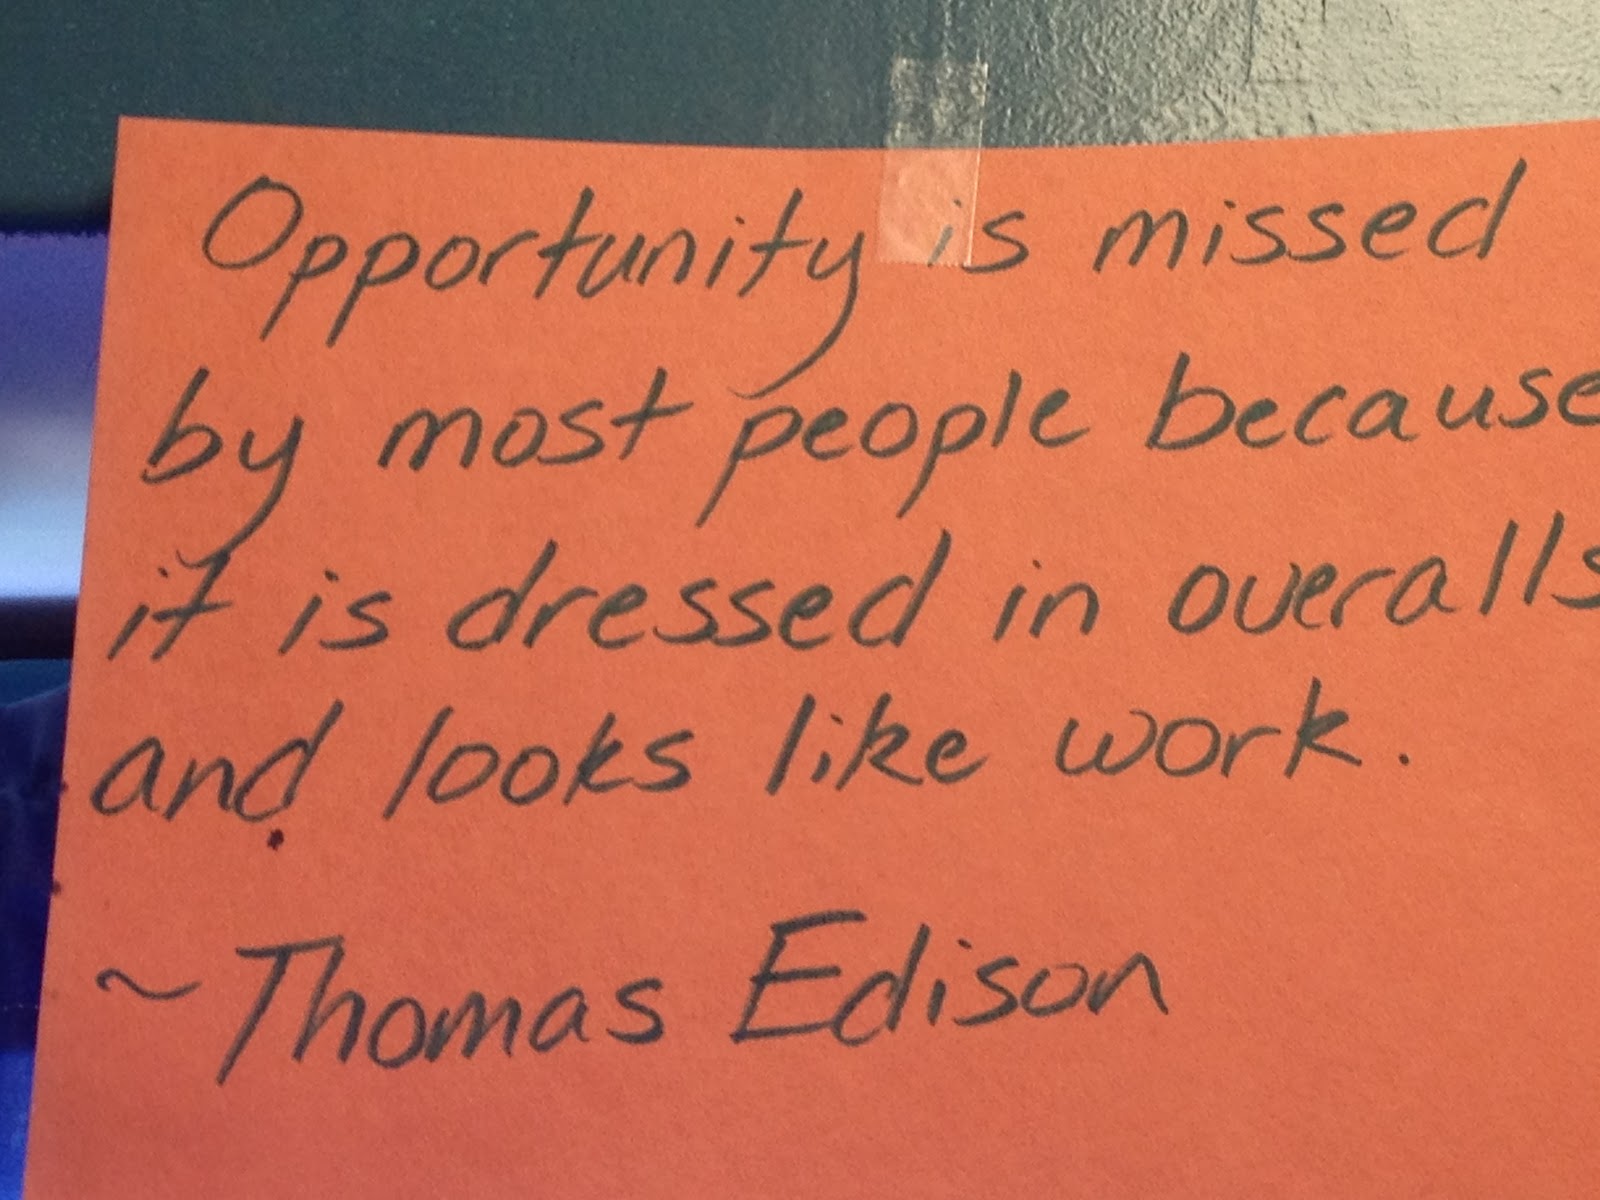 Opportunity is missed
by most people because
it is dressed in overalls
and looks like work.
~Thomas Edison